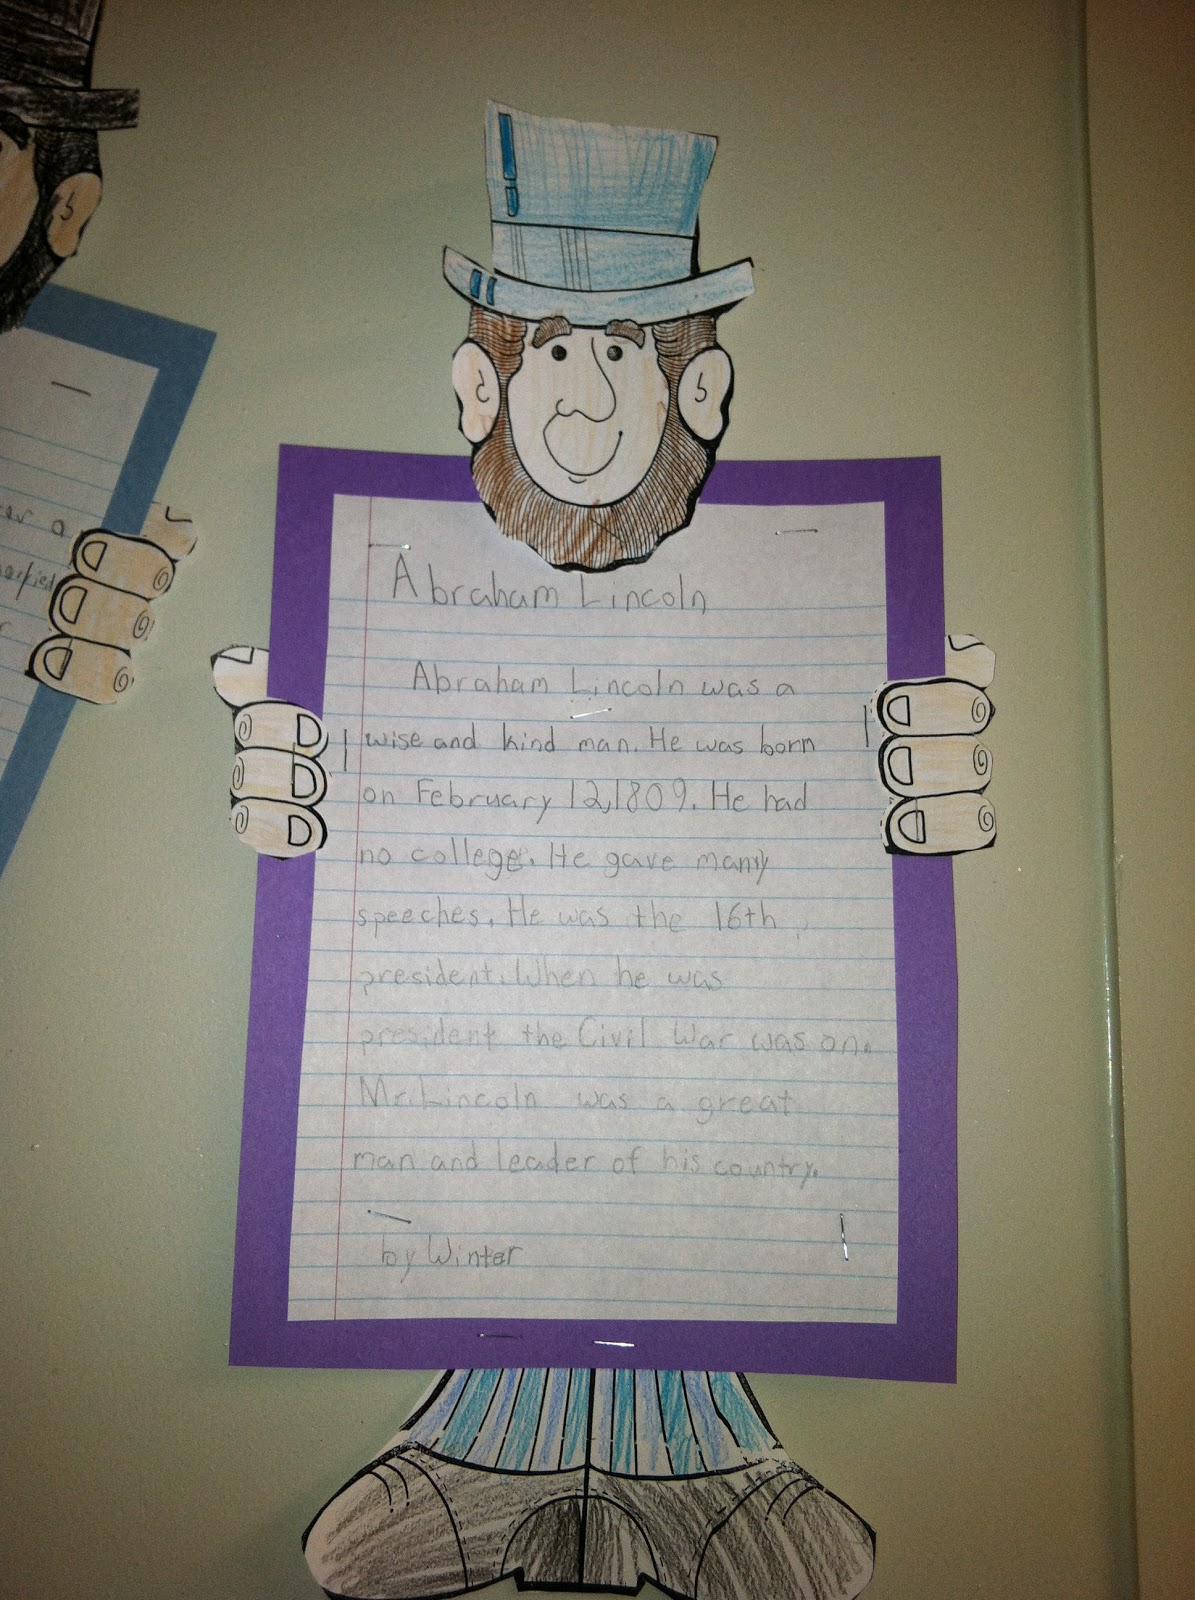 Abraham Lincoln
Abraham Lincoln was a
wise and kind man. He was born
on February 12, 1809. He had
no college. He gave many
speeches. He was the 16th
president. When he was
president the Civil War was on.
Mr. Lincoln was a great
man and leader of his country.
by Winter